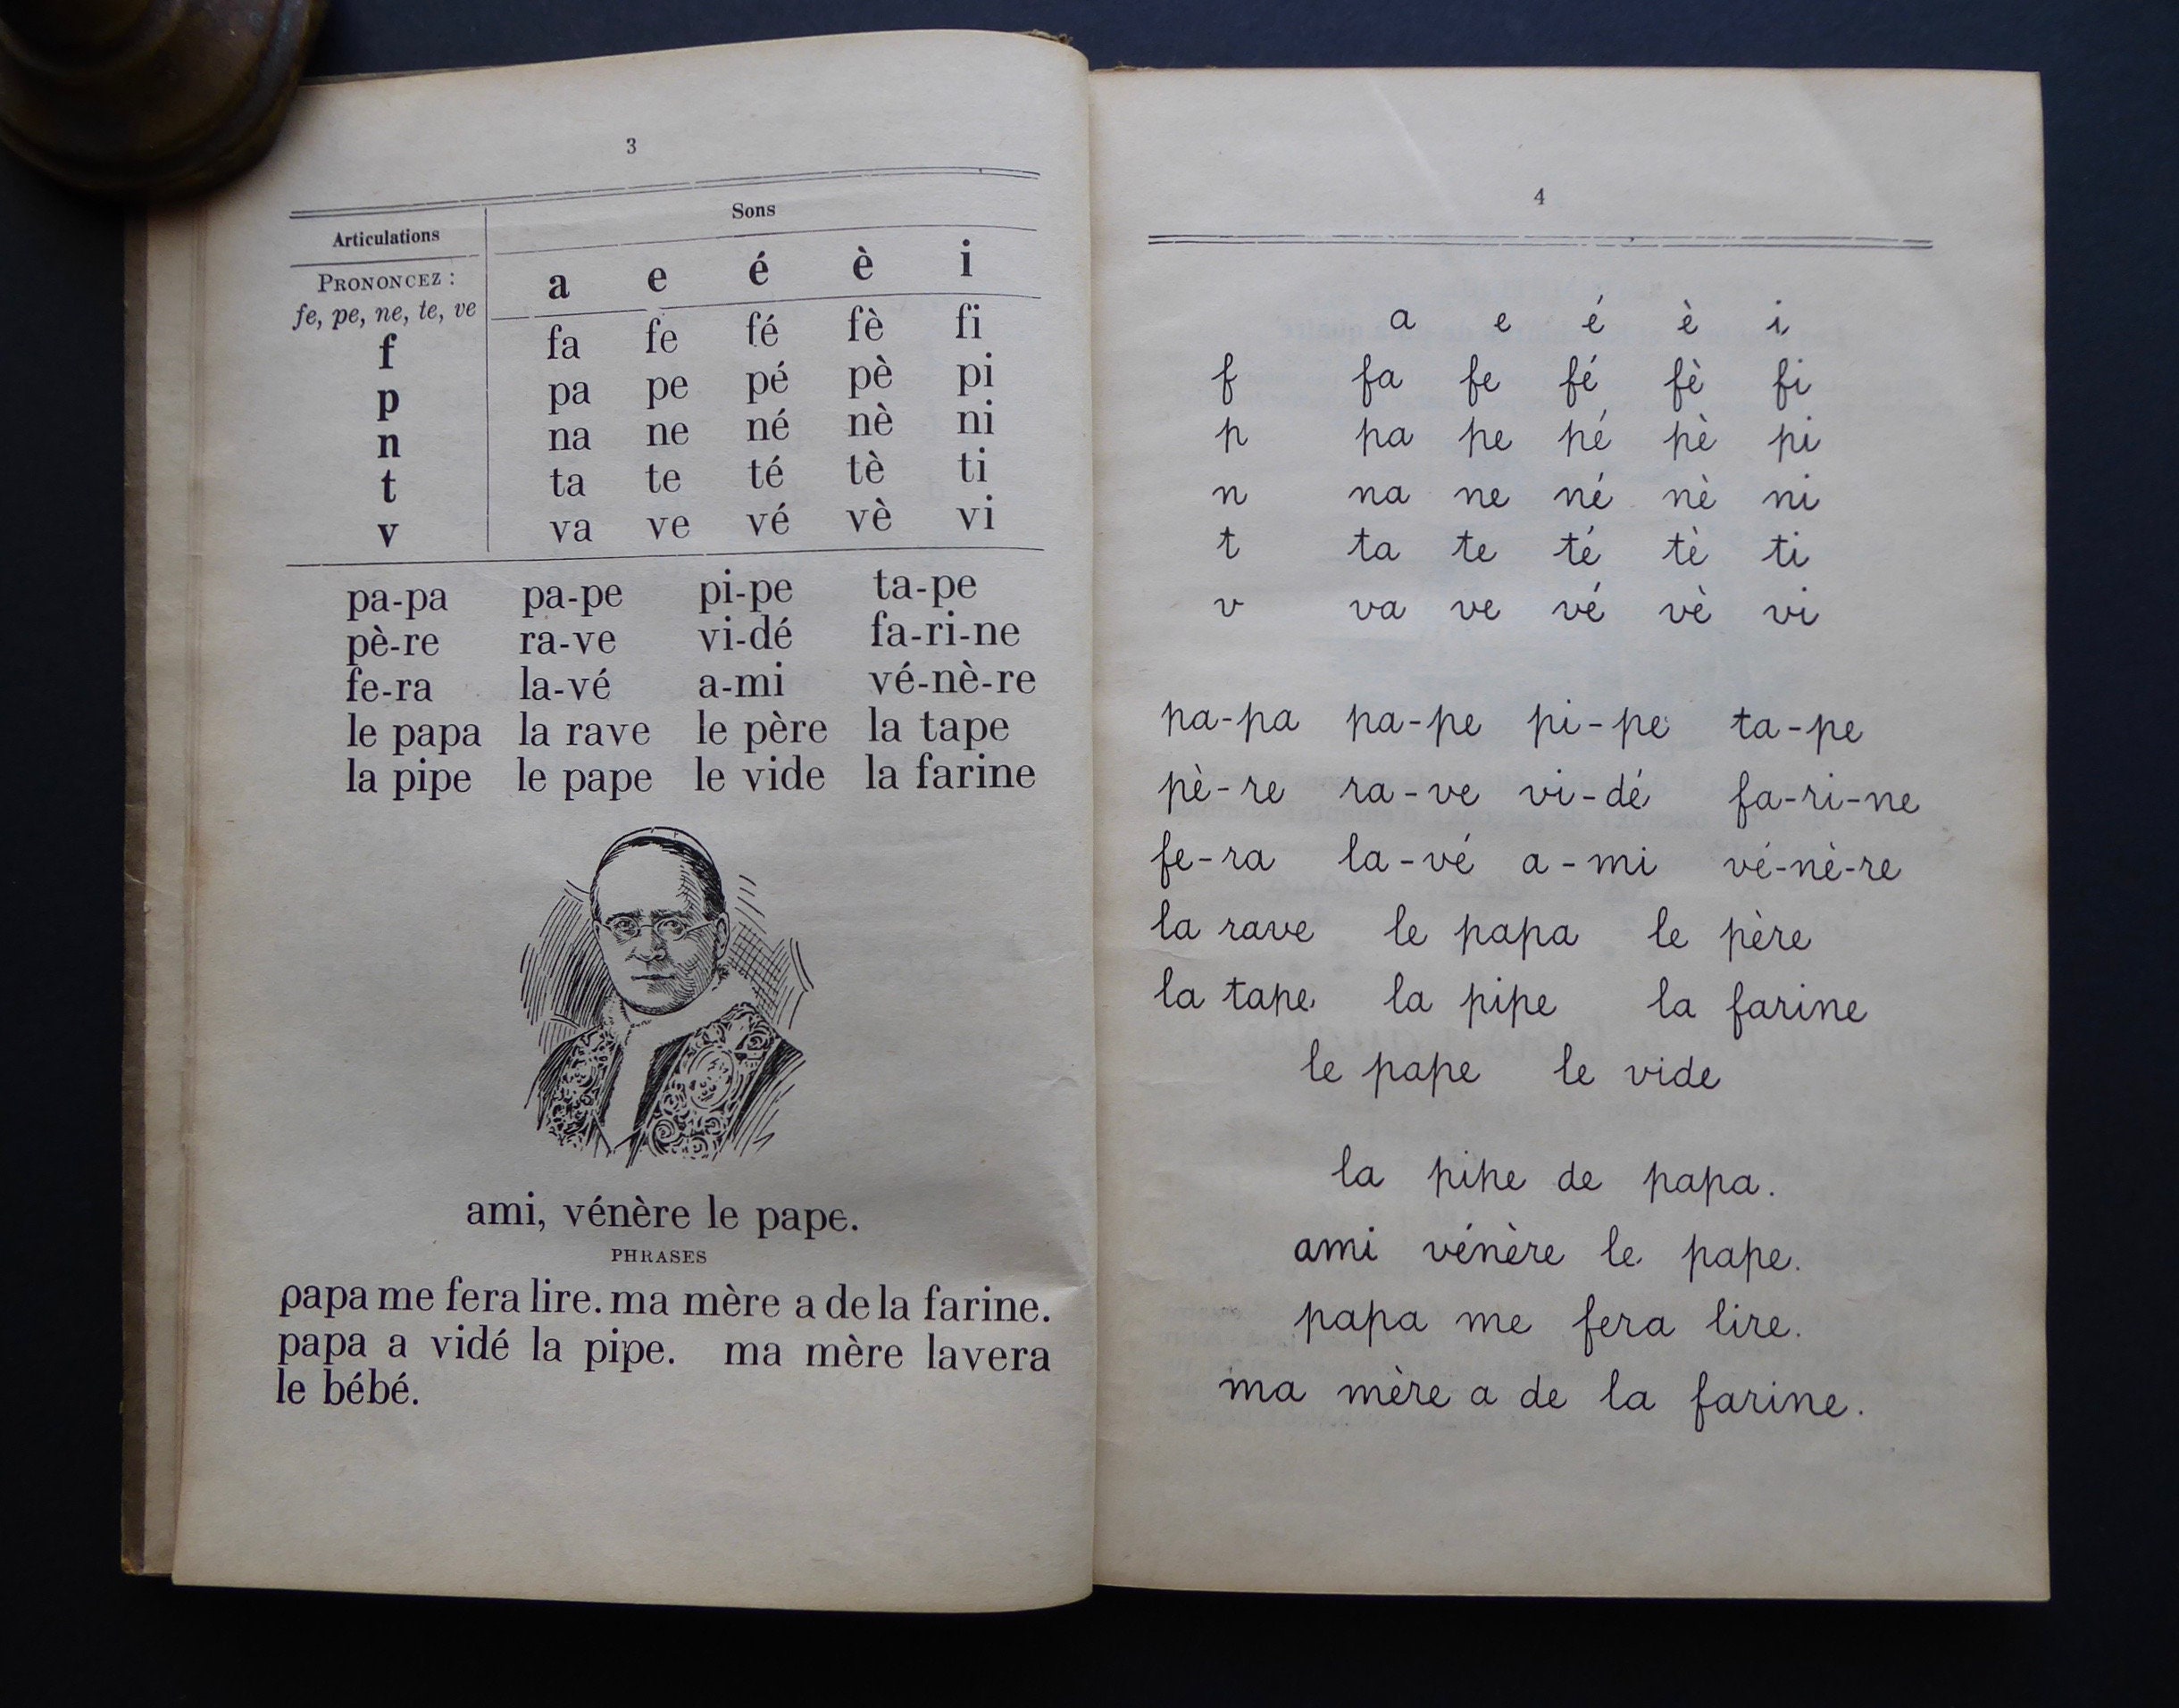 3
Articulations
Sons
PRONONCEZ :
fe, pe, ne, te, ve
a e é è i
f fa fe fé fè fi
p pa pe pé pè pi
n na ne né nè ni
t ta te té tè ti
v va ve vé vè vi
pa-pa pa-pe pi-pe ta-pe
pè-re ra-ve vi-dé fa-ri-ne
fe-ra la-vé a-mi vé-nè-re
le papa la rave le père la tape
la pipe le pape le vide la farine
ami, vénère le pape.
PHRASES
papa me fera lire. ma mère a de la farine.
papa a vidé la pipe. ma mère lavera
le bébé.
4
a e é è i
f fa fe fé fè fi
p pa pe pé pè pi
n na ne né nè ni
t ta te té tè ti
v va ve vé vè vi
pa-pa pa-pe pi-pe ta-pe
pè-re ra-ve vi-dé fa-ri-ne
fe-ra la-vé a-mi vé-nè-re
la rave le papa le père
la tape la pipe la farine
le pape le vide
la pipe de papa.
ami vénère le pape.
papa me fera lire.
ma mère a de la farine.